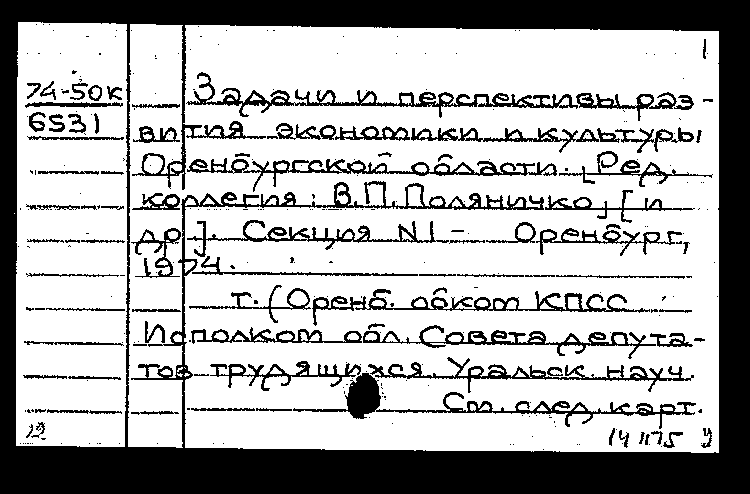 1
74-50к Задачи и перспективы раз-
6531 вития экономики и культуры
Оренбургской области. [Ред.
коллегия: В.П. Поляничко] [и
др]. Секция N1 - Оренбург,
1974.
т. (Оренб. обком КПСС
Исполком обл. Совета депута-
тов трудящихся. Уральск. науч.
См. след. карт.